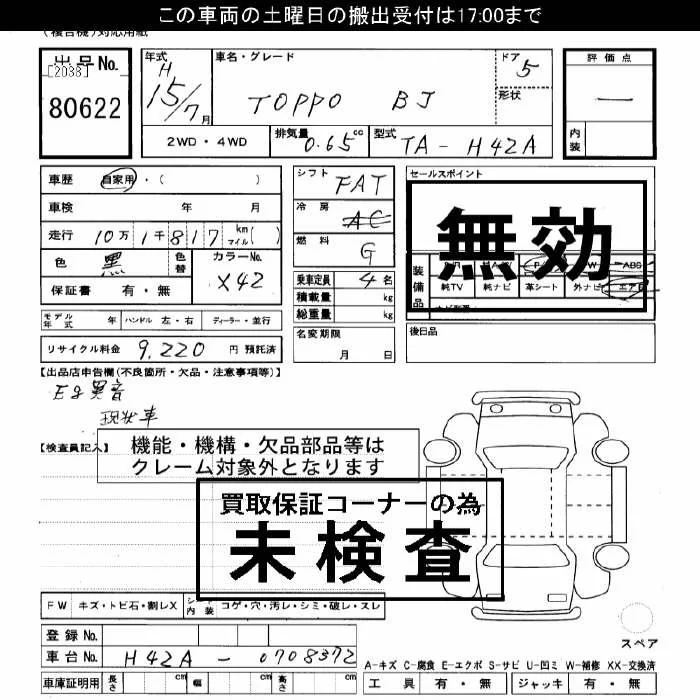 この車両の土曜日の搬出受付は17:00まで
(複合機)対応用紙
出品No. [2038] 80622
年式 H 15/7月
車名・グレード TOPPO BJ
ドア 5
形状
評価点 —
内装
2WD・4WD
排気量 0.65cc
型式 TA-H42A
車歴 自家用・( )
車検 年 月
走行 10万1千817 km マイル( )
色 黒 色替 カラーNo. X42
保証書 有・無
シフト FAT
冷房 AC
燃料 G
乗車定員 4名
積載量 kg
総重量 kg
セールスポイント
無効
装備品 ABS
純TV 純ナビ 革シート 外ナビ エアB
モデル年式 年 ハンドル 左・右 ディーラー・並行
名変期限 月 日
後日品
リサイクル料金 9,220 円 預託済
【出品店申告欄(不良箇所・欠品・注意事項等)】
Eg異音
現状車
【検査員記入】
機能・機構・欠品部品等は
クレーム対象外となります
買取保証コーナーの為
未検査
FW キズ・トビ石・割レX シート内装 コゲ・穴・汚レ・シミ・破レ・スレ
スペア
登録No.
車台No. H42A-0708372
A-キズ C-腐食 E-エクボ S-サビ U-凹ミ W-補修 XX-交換済
車庫証明用 長さ cm 幅 cm 高さ cm
工具 有・無 ジャッキ 有・無